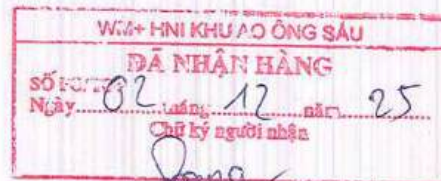 WM+ HNI KHU AO ÔNG SÁU
ĐÃ NHẬN HÀNG
SỐ
Ngày 02 tháng 12 năm 25
Chữ ký người nhận